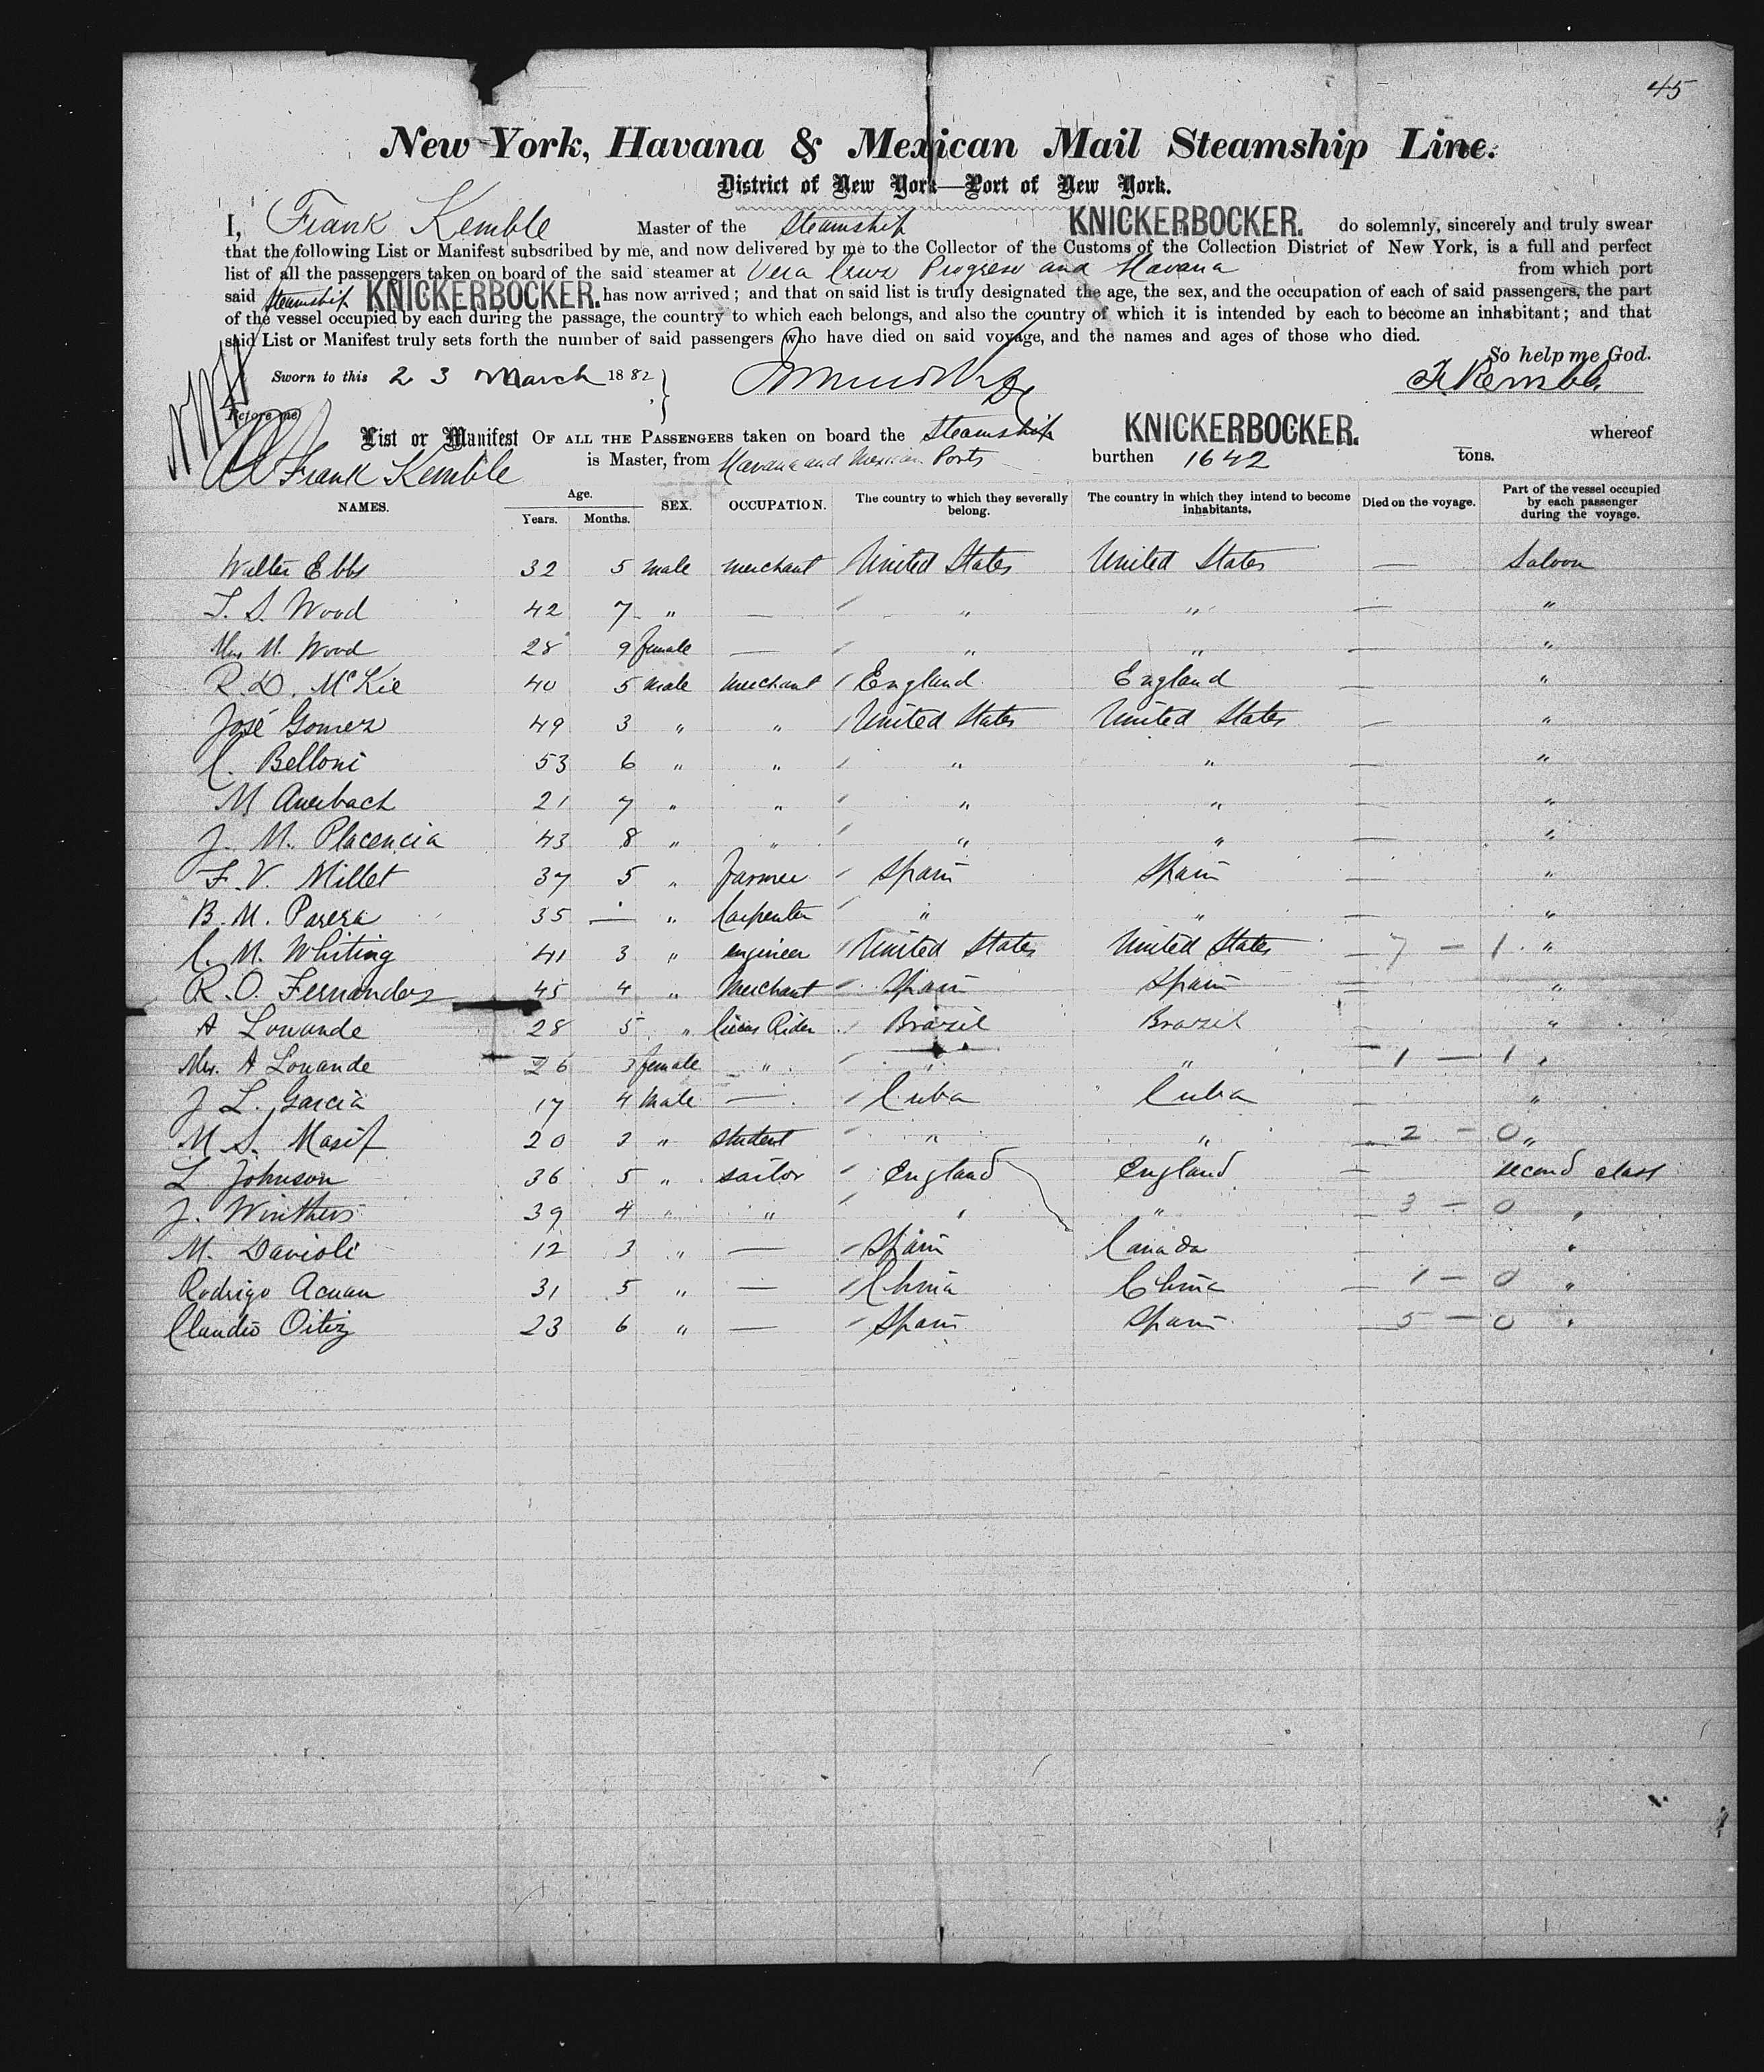 45
New York, Havana & Mexican Mail Steamship Line.
District of New York—Port of New York.
I, Frank Kemble Master of the Steamship KNICKERBOCKER. do solemnly, sincerely and truly swear
that the following List or Manifest subscribed by me, and now delivered by me to the Collector of the Customs of the Collection District of New York, is a full and perfect
list of all the passengers taken on board of the said steamer at Vera Cruz Progreso and Havana from which port
said Steamship KNICKERBOCKER. has now arrived; and that on said list is truly designated the age, the sex, and the occupation of each of said passengers, the part
of the vessel occupied by each during the passage, the country to which each belongs, and also the country of which it is intended by each to become an inhabitant; and that
said List or Manifest truly sets forth the number of said passengers who have died on said voyage, and the names and ages of those who died.
So help me God.
Sworn to this 23 March 1882 F. Kemble
Before me
List or Manifest OF ALL THE PASSENGERS taken on board the Steamship KNICKERBOCKER. whereof
Frank Kemble is Master, from Havana and Mexican Ports burthen 1642 tons.
NAMES. Age. Years. Months. SEX. OCCUPATION. The country to which they severally belong. The country in which they intend to become inhabitants. Died on the voyage. Part of the vessel occupied by each passenger during the voyage.
Walter Ebbs 32 5 male merchant United States United States — Saloon
T. S. Wood 42 7 " — " " — "
Mrs M. Wood 28 9 female — " " — "
R. D. McKie 40 5 male merchant England England — "
José Gomez 49 3 " " United States United States — "
C. Belloni 53 6 " " " " — "
M Auerbach 21 7 " " " " — "
J. M. Placencia 43 8 " " " " — "
F. V. Millet 37 5 " farmer Spain Spain — "
B. M. Parera 35 — " Carpenter " " — "
C. M. Whiting 41 3 " engineer United States United States — 7 — 1 "
R. O. Fernandez 45 4 " Merchant Spain Spain — "
A Lowande 28 5 " Circus Rider Brazil Brazil — "
Mrs. A Lowande 26 3 female " " " — 1 — 1 "
J L. Garcia 17 4 Male — Cuba Cuba — "
M. S. Masif 20 3 " student " " — 2 — 0 "
L Johnson 36 5 " sailor England England — second class
J. Winthers 39 4 " " " " — 3 — 0 "
M. Davioli 12 3 " — Spain Canada — "
Rodrigo Acuan 31 5 " — China China — 1 — 0 "
Claudio Oitiz 23 6 " — Spain Spain — 5 — 0 "